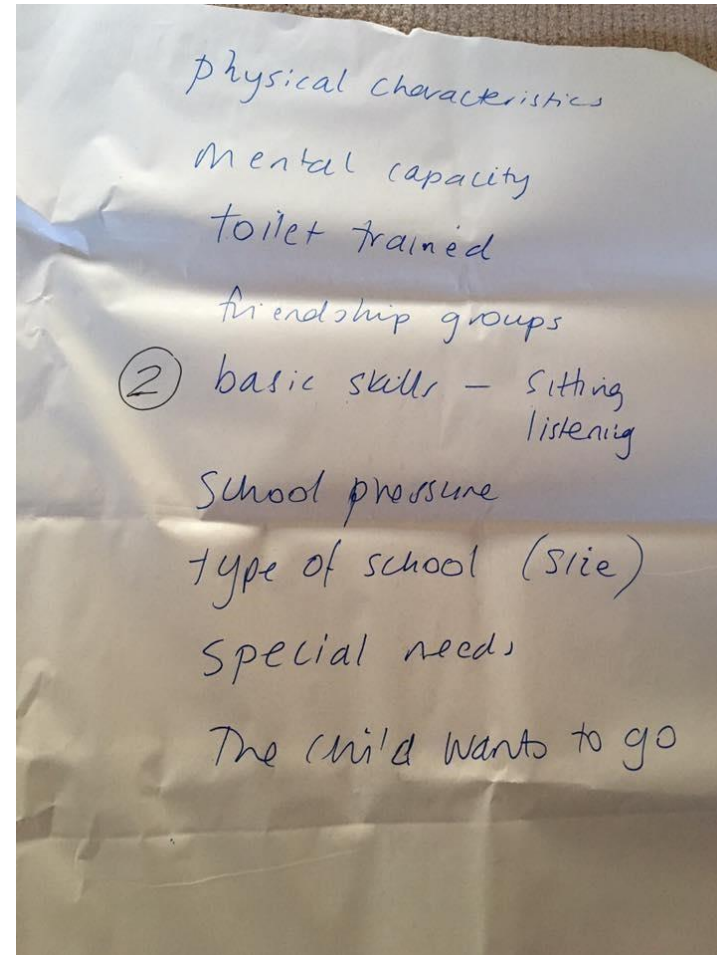 physical characteristics
mental capacity
toilet trained
friendship groups
② basic skills – sitting
listening
School pressure
type of school (size)
special needs
The child wants to go